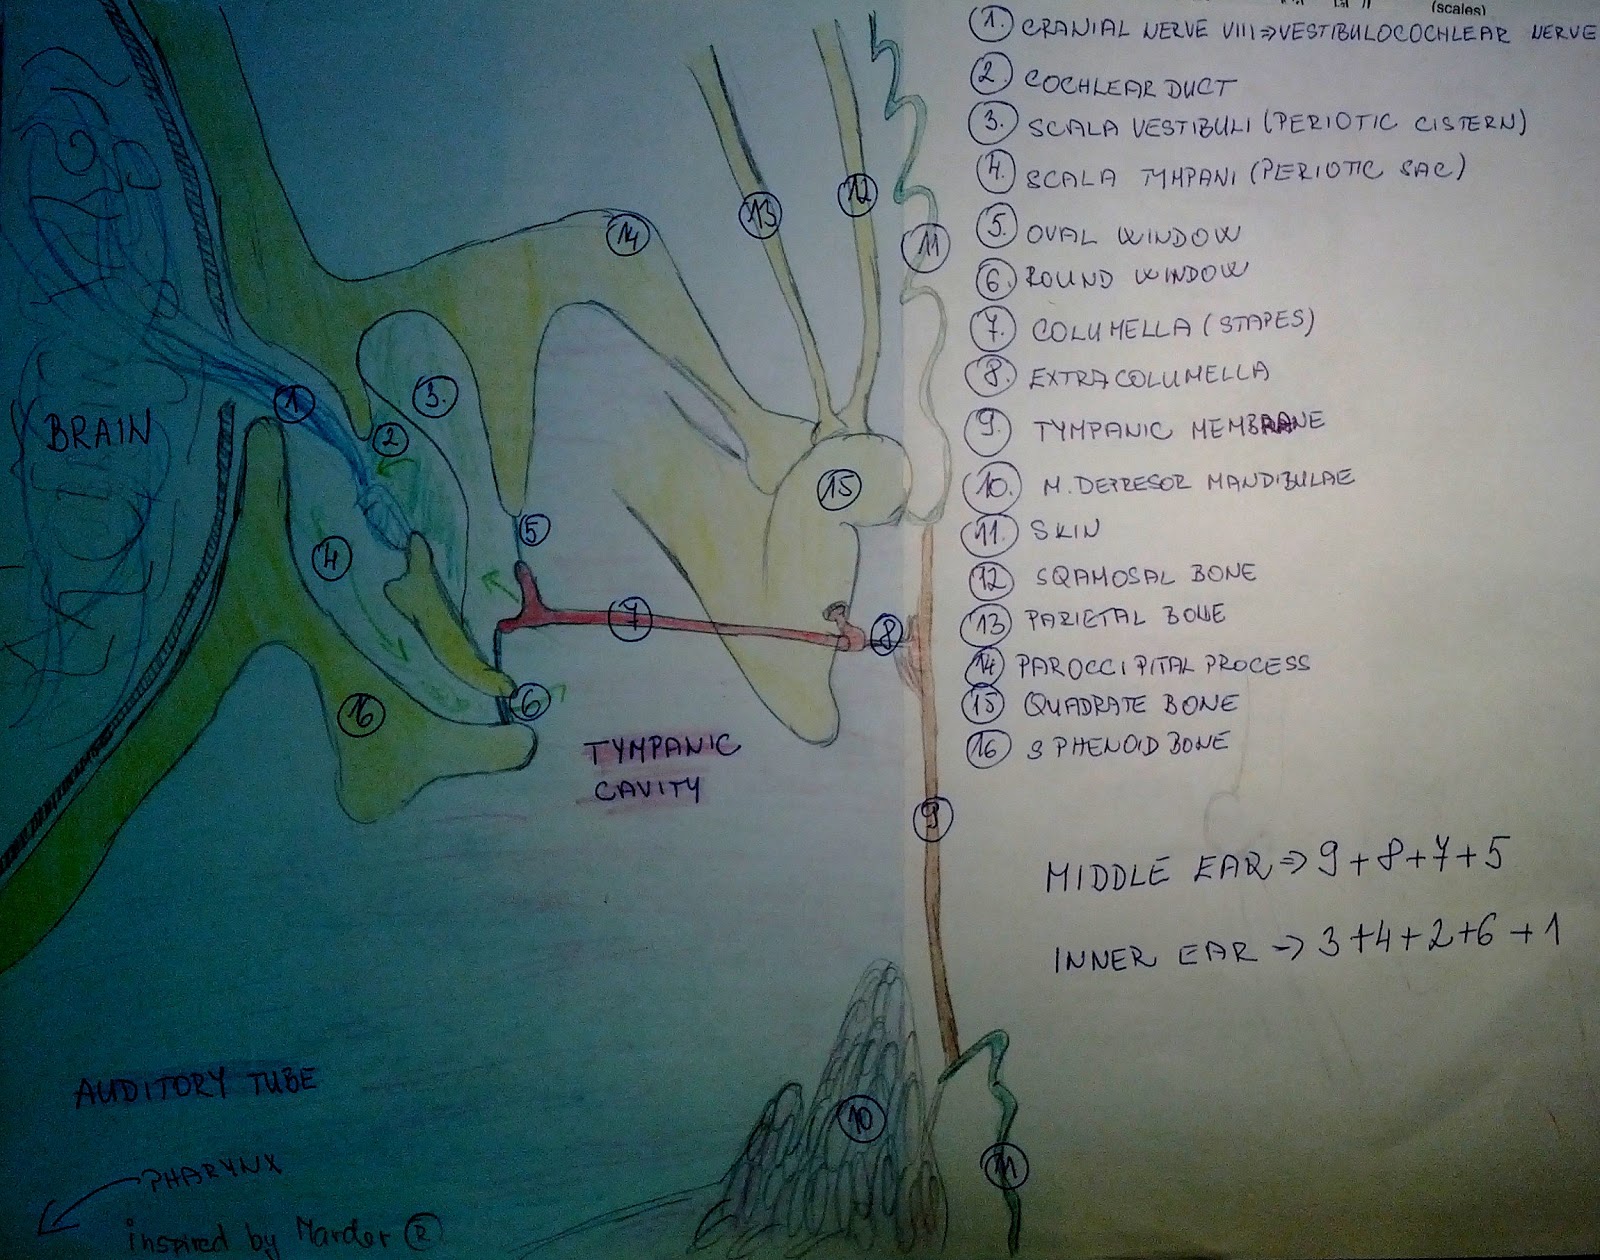 (scales)
1. CRANIAL NERVE VIII⇒VESTIBULOCOCHLEAR NERVE
2. COCHLEAR DUCT
3. SCALA VESTIBULI (PERIOTIC CISTERN)
4. SCALA TYMPANI (PERIOTIC SAC)
5. OVAL WINDOW
6. ROUND WINDOW
7. COLUMELLA (STAPES)
8. EXTRACOLUMELLA
9. TYMPANIC MEMBRANE
10. M. DEPRESOR MANDIBULAE
11. SKIN
12 SQAMOSAL BONE
13 PARIETAL BONE
14 PAROCCIPITAL PROCESS
15 QUADRATE BONE
16 SPHENOID BONE
MIDDLE EAR ⇒ 9+8+7+5
INNER EAR → 3+4+2+6+1
13
12
14
11
1
3.
2
BRAIN
15
5
4
7
8
6
16
TYMPANIC
CAVITY
9
AUDITORY TUBE
10
11
PHARYNX
inspired by Marder R